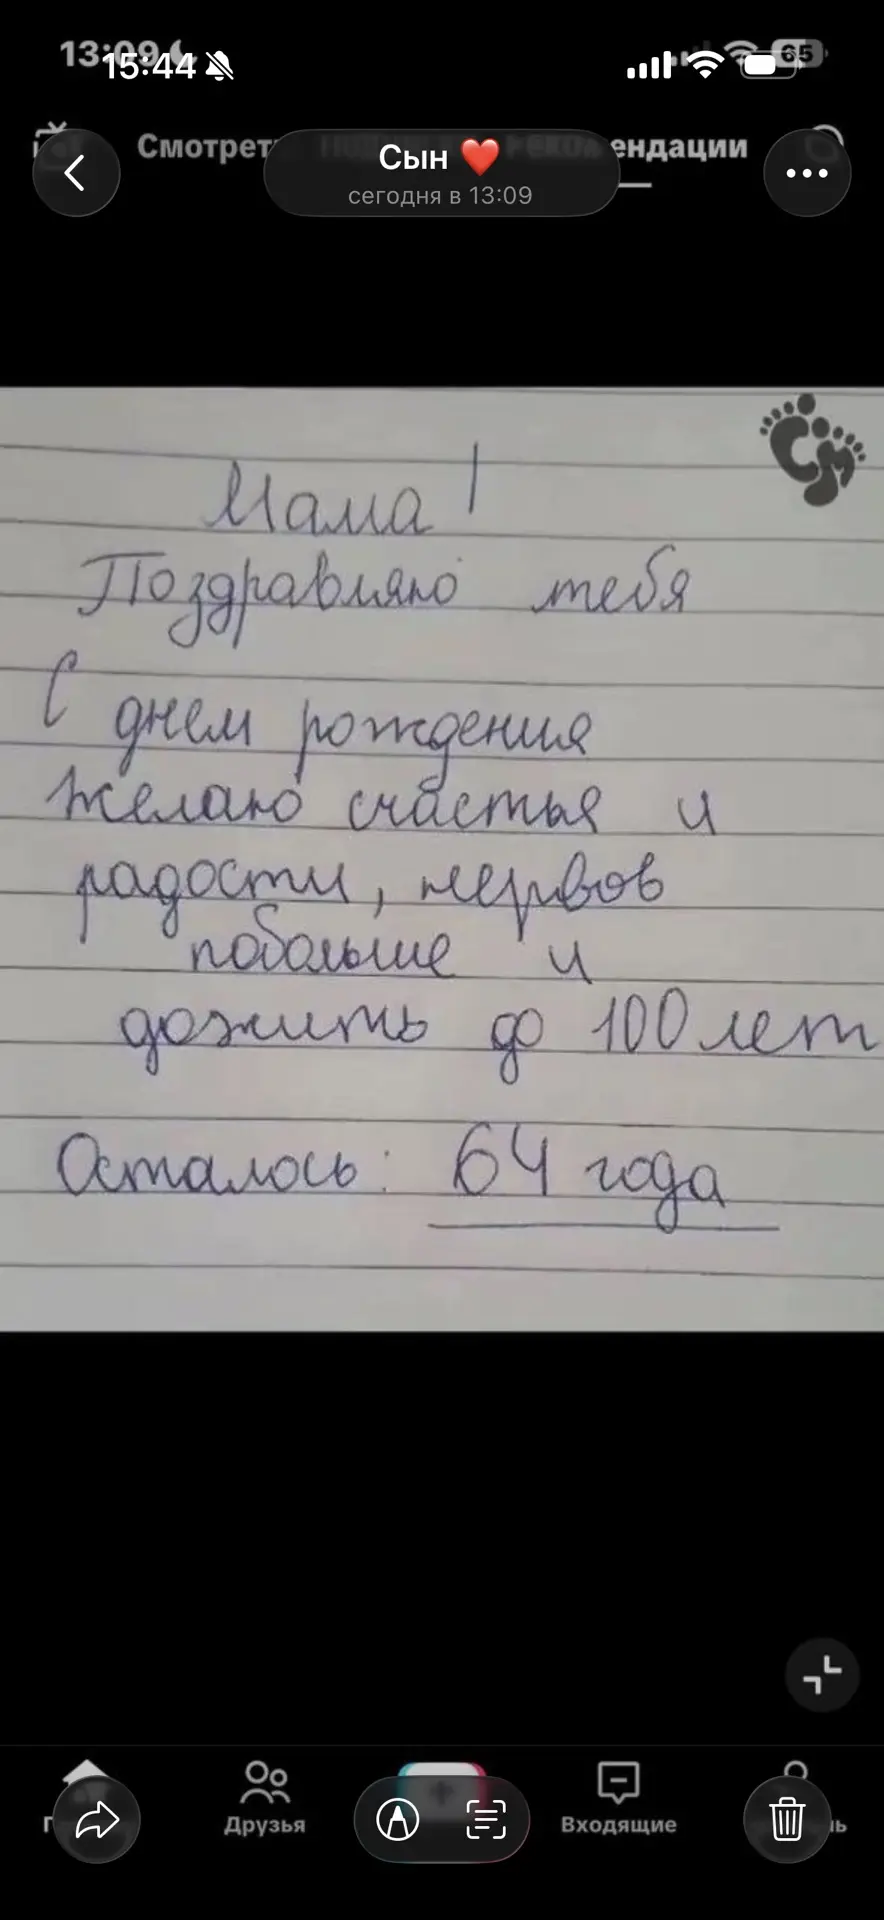 13:09
15:44
65
Смотреть
ендации
Сын ❤️
сегодня в 13:09
СМ
Мама!
Поздравляю тебя
С днем рождения
желаю счастья и
радости, нервов
побольше и
дожить до 100 лет
Осталось: 64 года
Друзья
Входящие